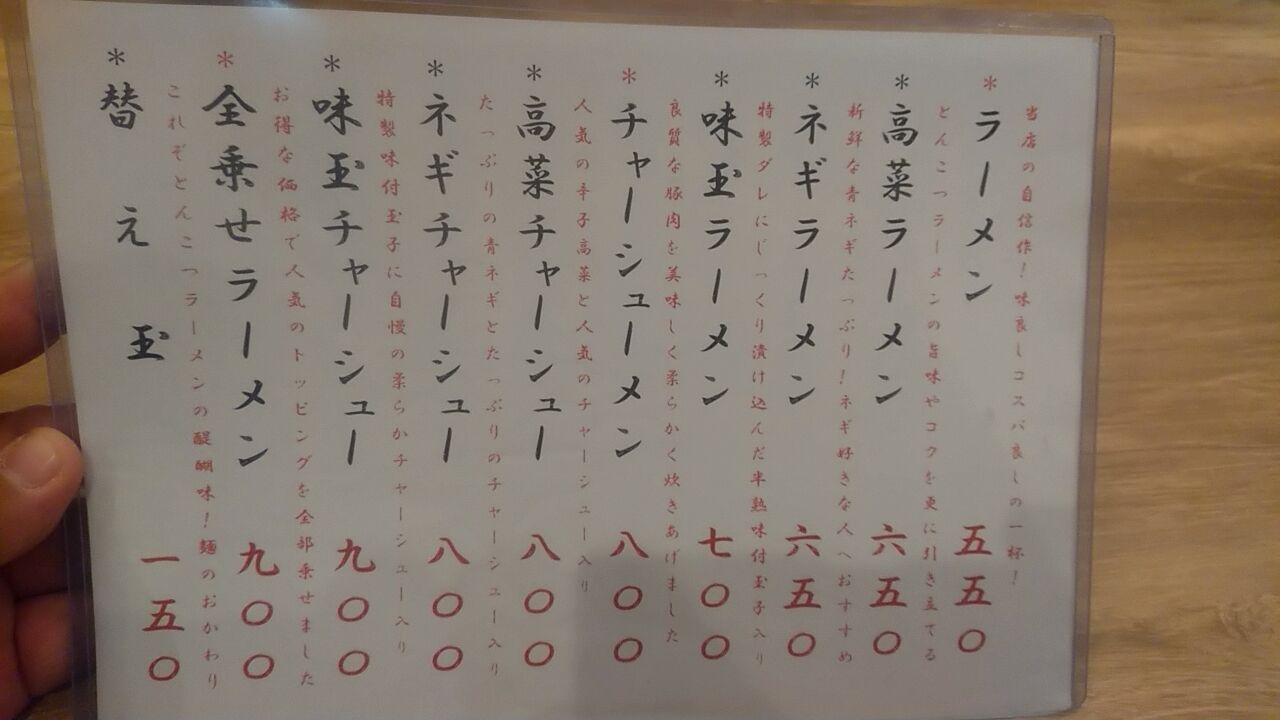 当店の自信作！味良しコスパ良しの一杯！
＊ラーメン 五五〇
とんこつラーメンの旨味やコクを更に引き立てる
＊高菜ラーメン 六五〇
新鮮な青ネギたっぷり！ネギ好きな人へおすすめ
＊ネギラーメン 六五〇
特製ダレにじっくり漬け込んだ半熟味付玉子入り
＊味玉ラーメン 七〇〇
良質な豚肉を美味しく柔らかく炊きあげました
＊チャーシューメン 八〇〇
人気の辛子高菜と人気のチャーシュー入り
＊高菜チャーシュー 八〇〇
たっぷりの青ネギとたっぷりのチャーシュー入り
＊ネギチャーシュー 八〇〇
特製味付玉子に自慢の柔らかチャーシュー入り
＊味玉チャーシュー 九〇〇
お得な価格で人気のトッピングを全部乗せました
＊全乗せラーメン 九〇〇
これぞとんこつラーメンの醍醐味！麺のおかわり
＊替え玉 一五〇